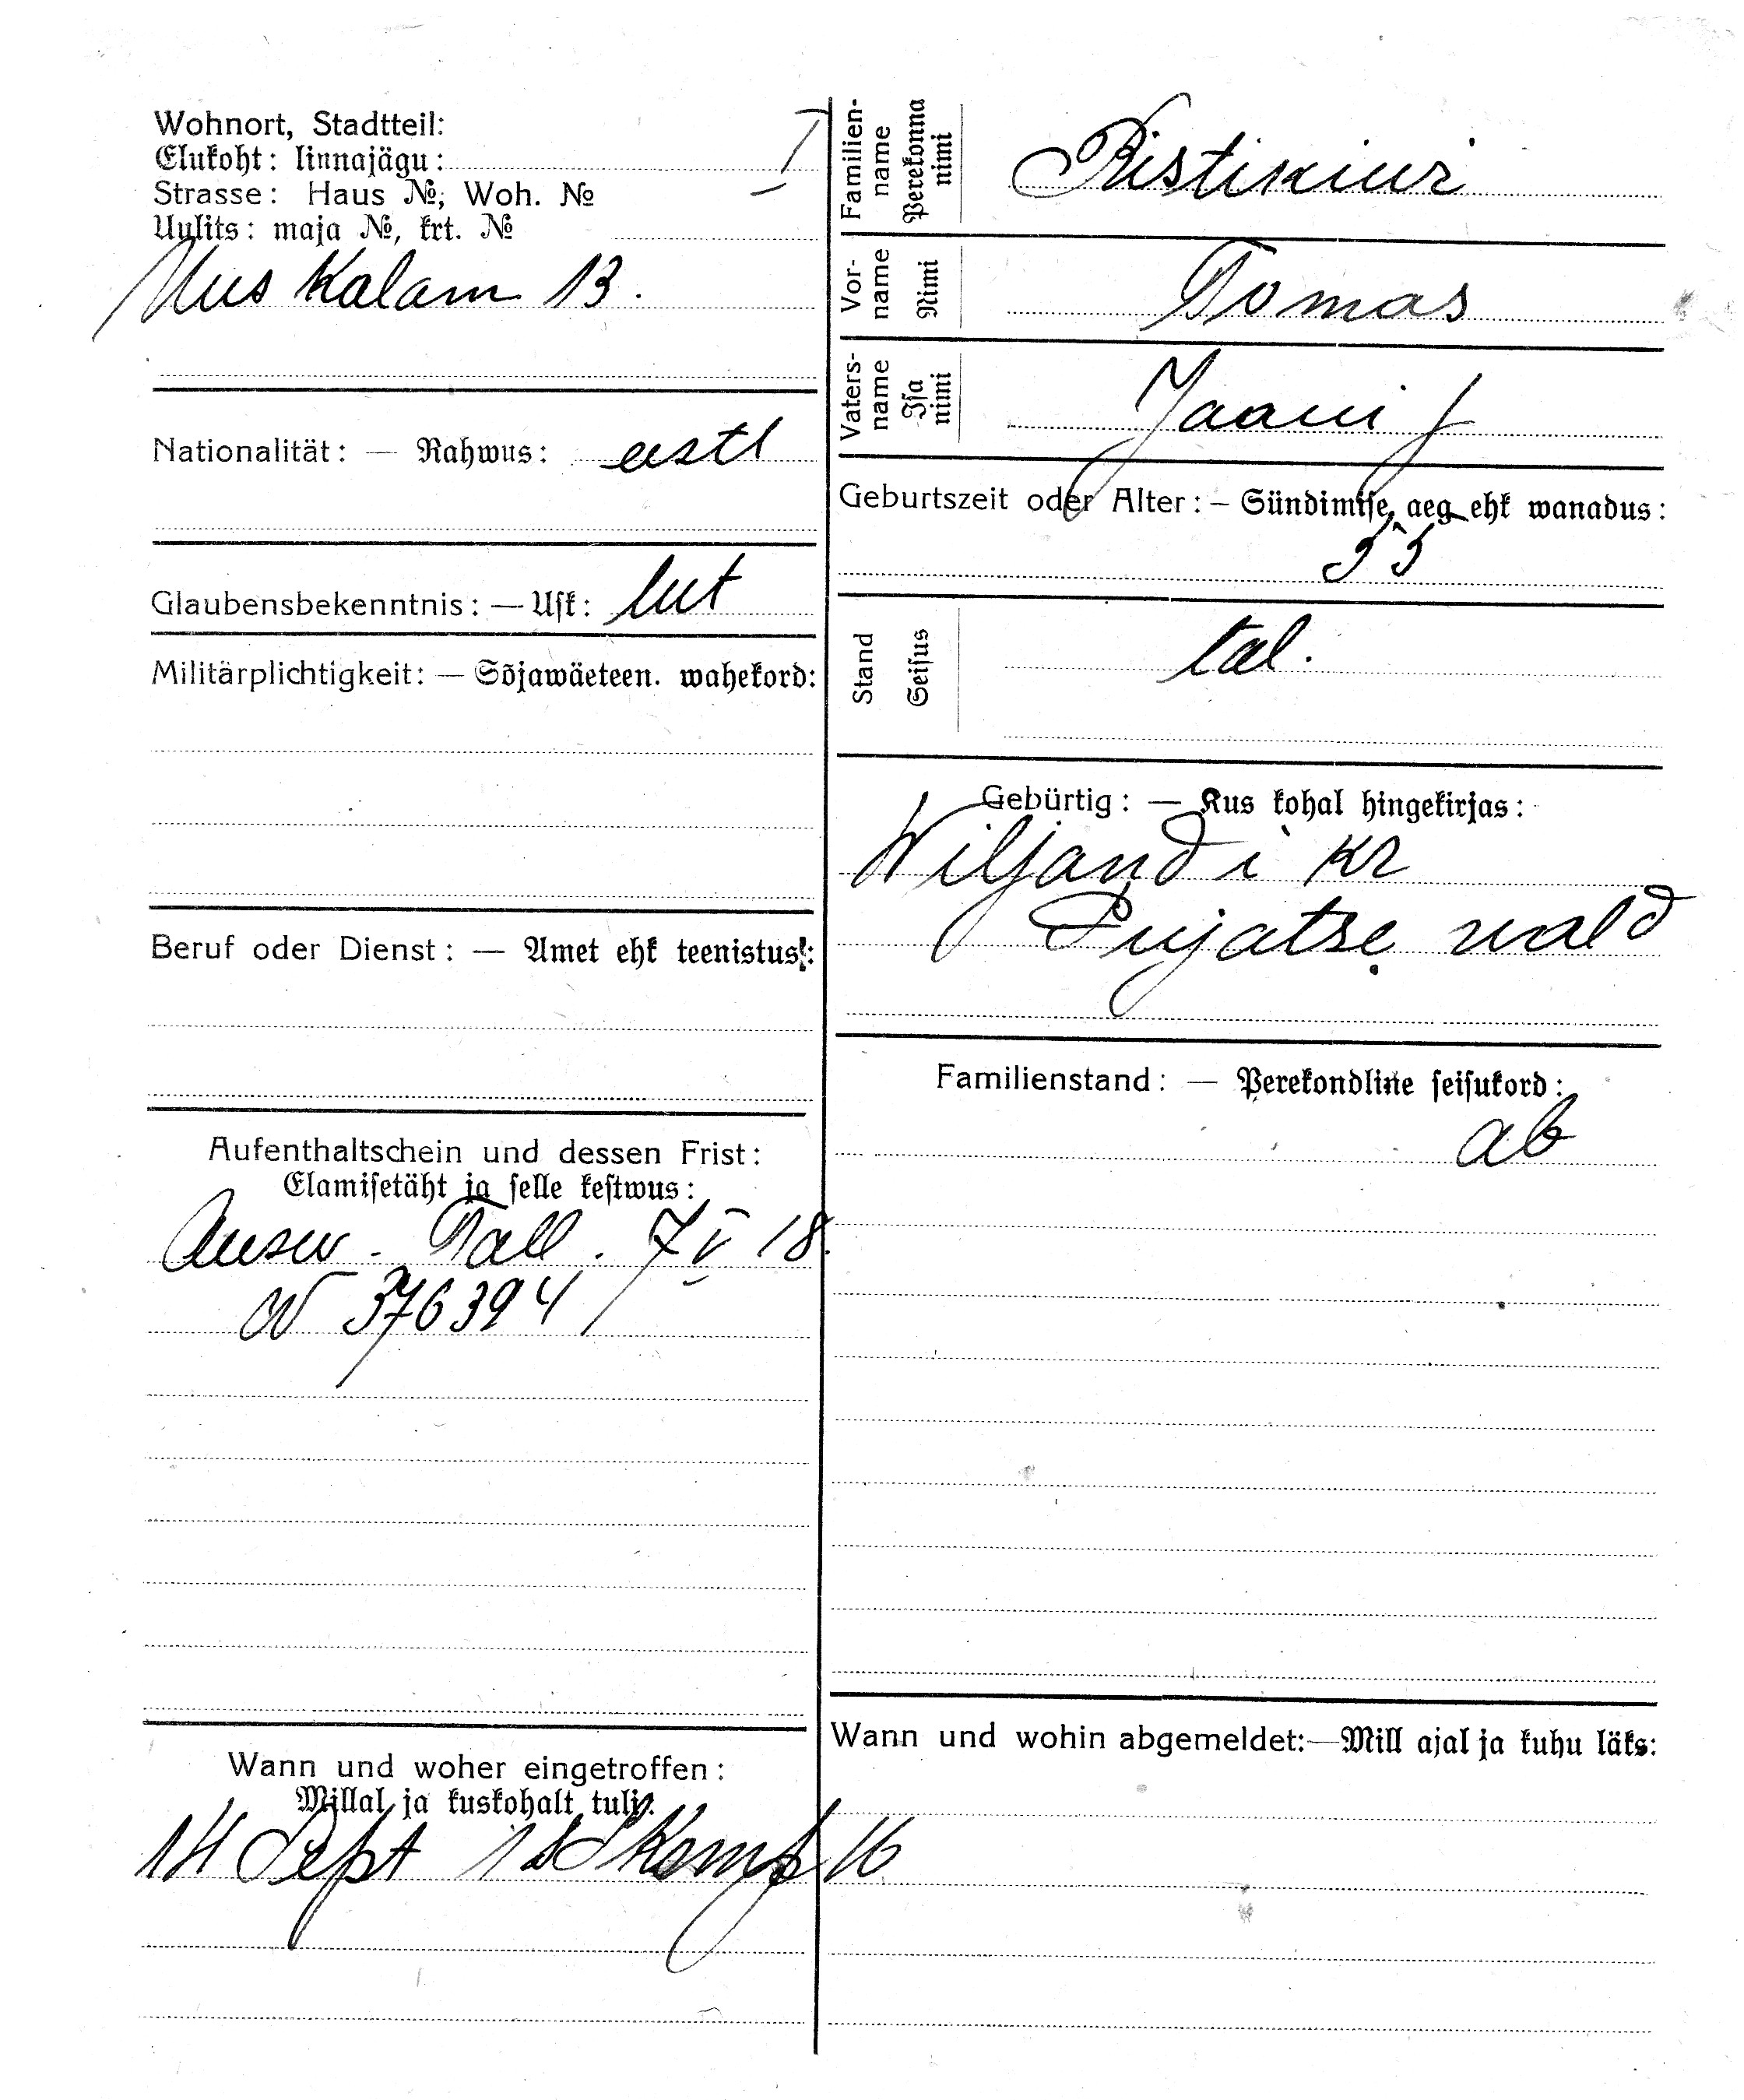 Wohnort, Stadtteil:
Elukoht: linnajägu: I
Strasse: Haus №; Woh. №
Uulits: maja №, krt. №
Uus Kalam 13.
Nationalität: — Rahwus: eestl
Glaubensbekenntnis: — Usk: lut
Militärplichtigkeit: — Sõjawäeteen. wahekord:
Beruf oder Dienst: — Amet ehk teenistus:
Aufenthaltschein und dessen Frist:
Elamisetäht ja selle kestwus:
Ausw. Tall. 7 V 18.
N 376394
Wann und woher eingetroffen:
Millal ja kuskohalt tuli:
14 Sept 18 Komp 16
Familien-
name
Perekonna
nimi
Ristikiwi
Vor-
name
Nimi
Tomas
Vaters-
name
Isa
nimi
Jaani p
Geburtszeit oder Alter: – Sündimise aeg ehk wanadus:
55
Stand
Seisus
tal.
Gebürtig: — Kus kohal hingekirjas:
Wiljandi kr
Pujatse wald
Familienstand: — Perekondline seisukord:
ab
Wann und wohin abgemeldet:—Mill ajal ja kuhu läks: